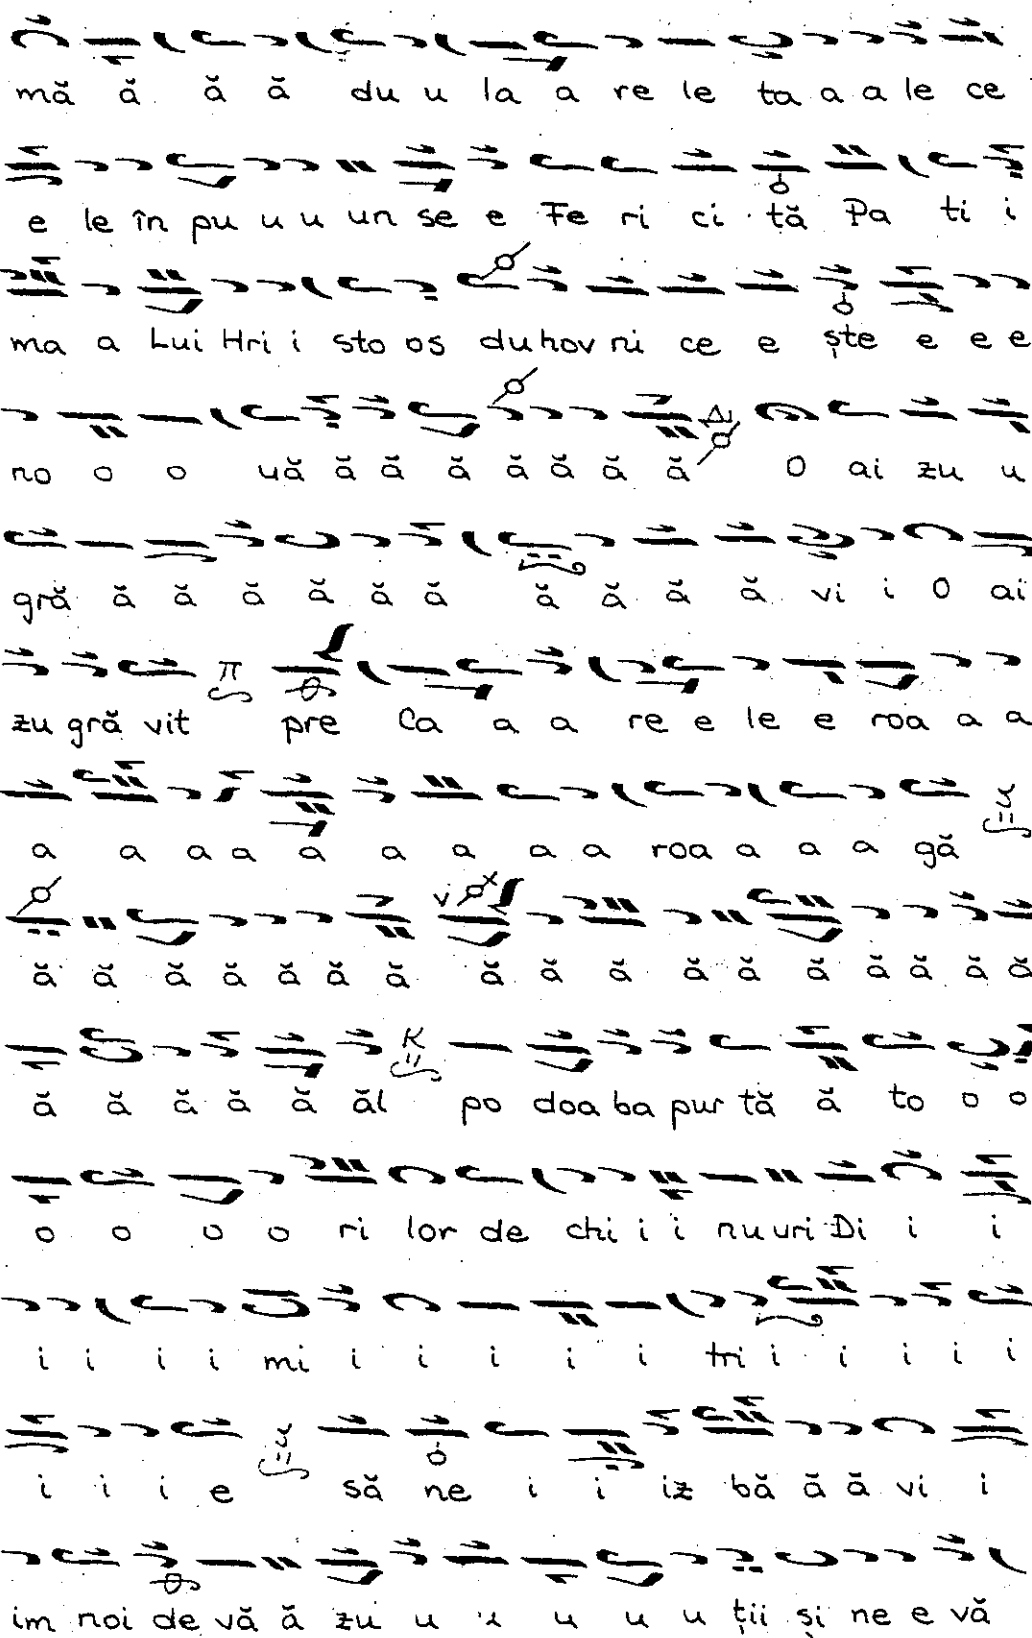 mă ă ă ă du u la a re le ta a a le ce
e le în pu u u un se e Fe ri ci tă Pa ti i
ma a Lui Hri i sto os du hov ni ce e ște e e e
no o o uă ă ă ă ă ă ă ă O ai zu u
gră ă ă ă ă ă ă ă ă ă ă vi i O ai
zu gră vit π pre Ca a a re e le e roa a a
a a a a a a a a a roa a a a gă
ă ă ă ă ă ă ă ă ă ă ă ă ă ă ă ă ă
ă ă ă ă ă ăl po doa ba pur tă ă to o o
o o o o ri lor de chi i i nu uri Di i i
i i i i mi i i i i i tri i i i i i
i i i e să ne i i iz bă ă ă vi i
im noi de vă ă zu u u u u u ții și ne e vă